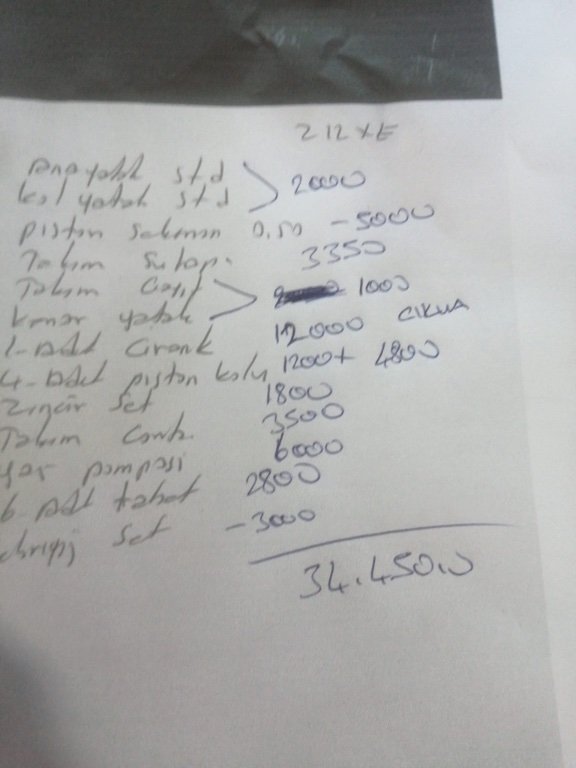 Z 12 XE
Ana yatak std
kol yatak std > 2000
piston sekman 0.50 - 5000
Takım Subap. 3350
Takım Cont
kenar yatak > 1000
1-Adet Crank 12000 CIKMA
4-Adet piston kolu 1200+ 4800
Zincir Set 1800
Takım Conta. 3500
Yağ pompasi 6000
6 Adt 2800
Set - 3000
34.450.0